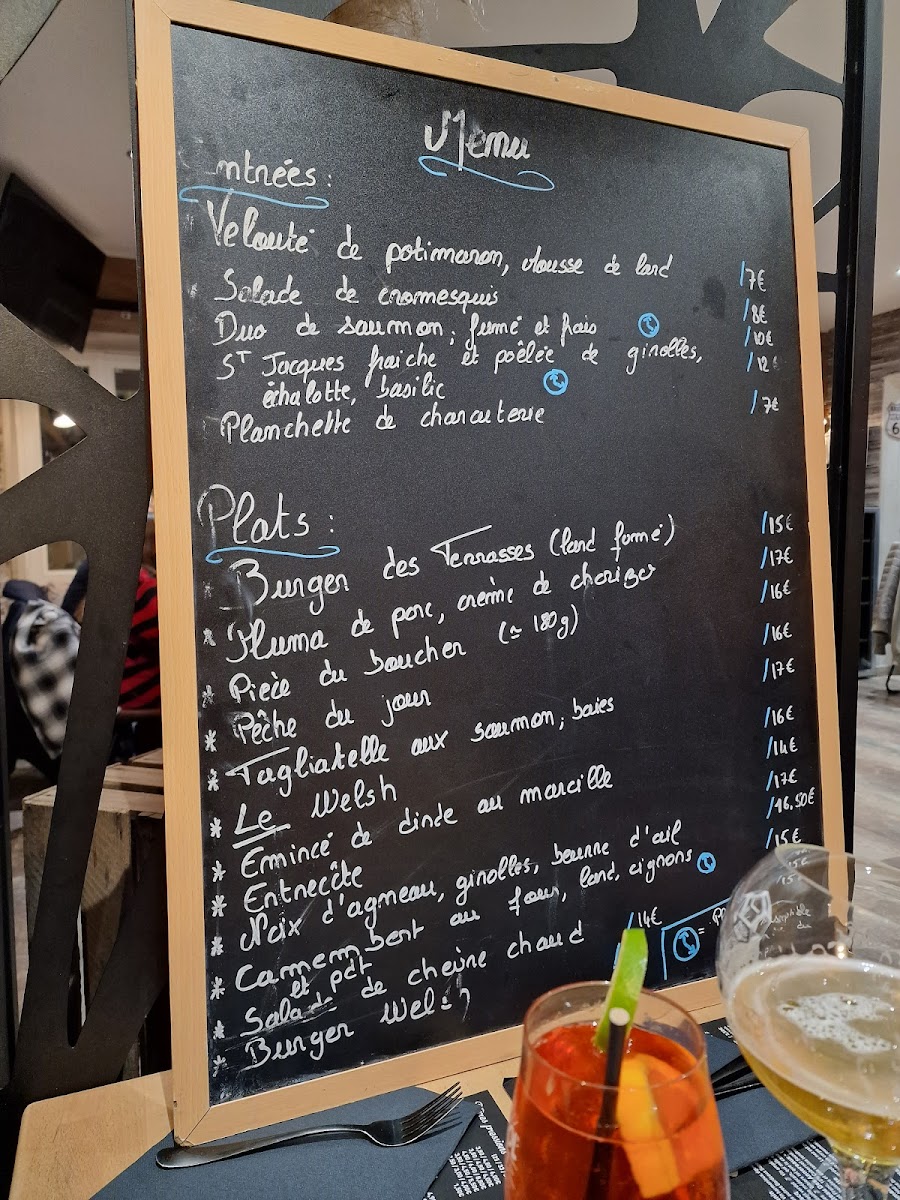 Menu
ntrées :
Velouté de potimaron, Mousse de lard /7€
Salade de cromesquis /8€
Duo de saumon, fumé et frais /10€
ST Jacques fraiche et poêlée de girolles, /12€
échalotte, basilic
Planchette de charcuterie /7€
Plats :
* Burger des Terrasses (lard fumé) /15€
* Pluma de porc, crème de chorizo /17€
* Pièce du boucher (≃ 180g) /16€
* Pêche du jour /16€
* Tagliatelle aux saumon, baies /17€
* Le Welsh /16€
* Emincé de dinde au maroille /14€
* Entrecôte /17€
* Noix d'agneau, girolles, beurre d'ail /16.50€
* Camembert au four, lard, oignons /15€
et pdt
* Salade de chèvre chaud /14€
* Burger Wel
= Pl